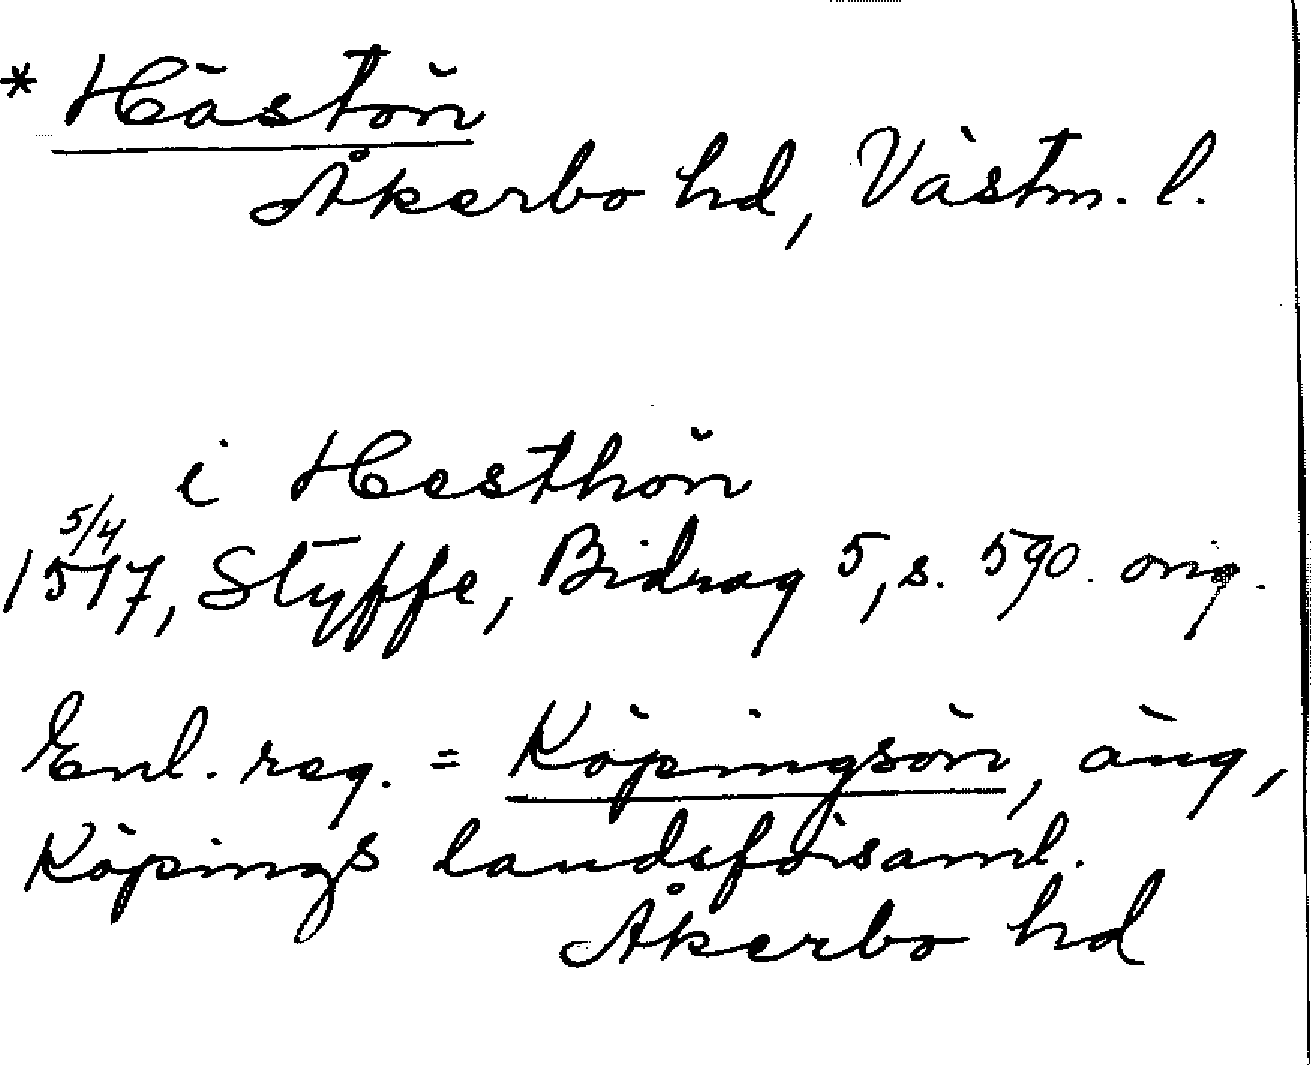 * Hästön
Åkerbo hd, Västm. l.
i Hesthön
5/4
1517, Styffe, Bidrag 5, s. 590. orig.
Enl. reg. = Köpingsön, äng,
Köpings landsförsaml.
Åkerbo hd